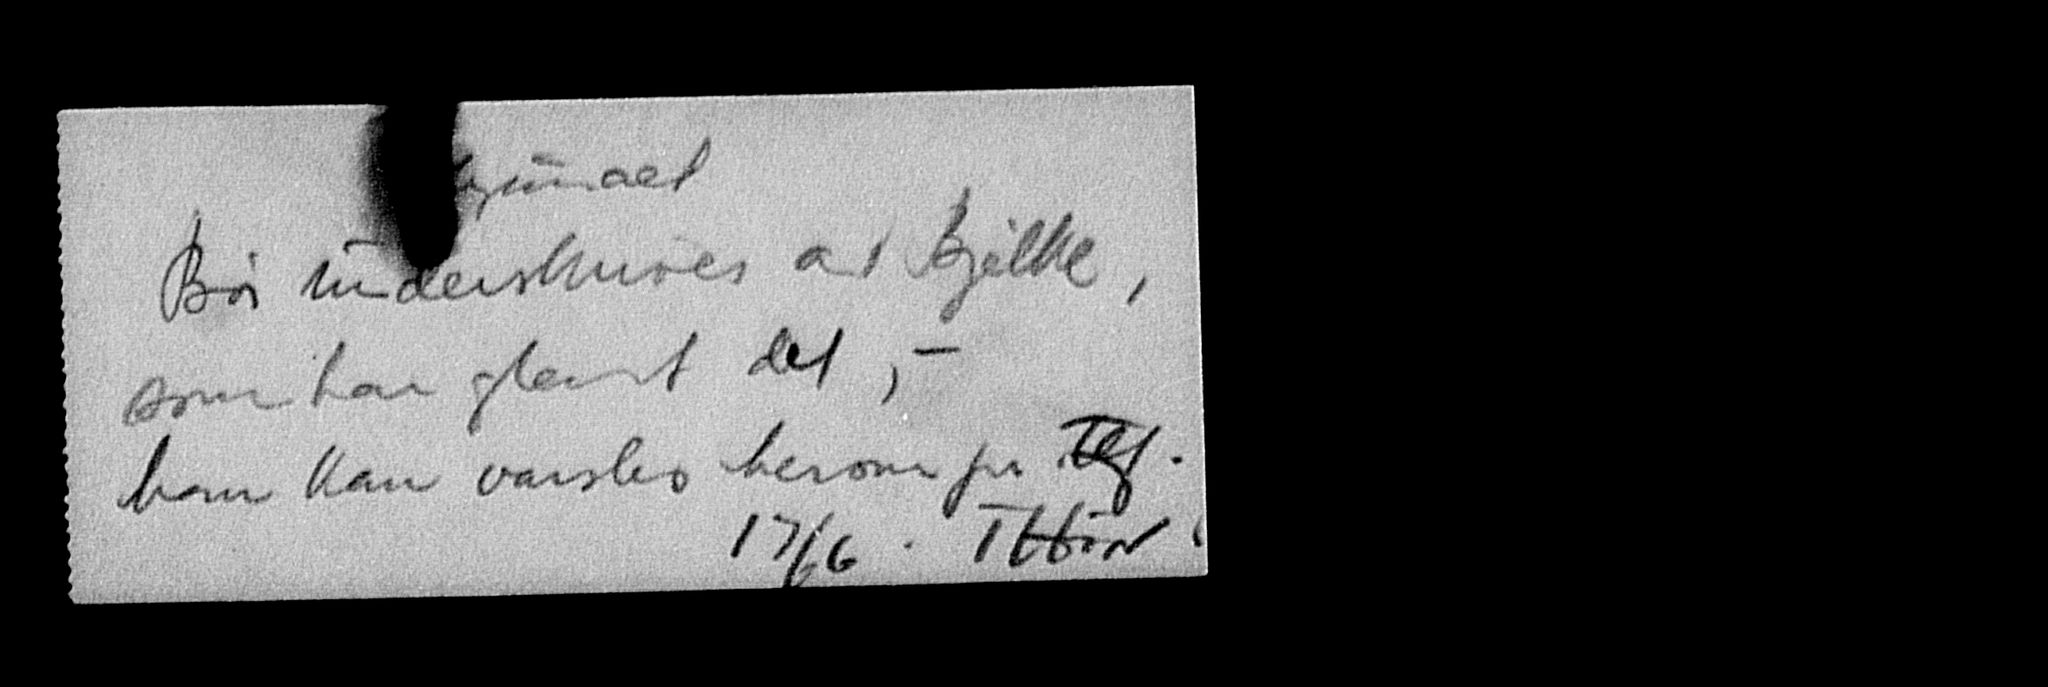 Bør underskrives av Bjelke,
som har glemt det, –
han kan varsles herom pr Tlf.
17/6.